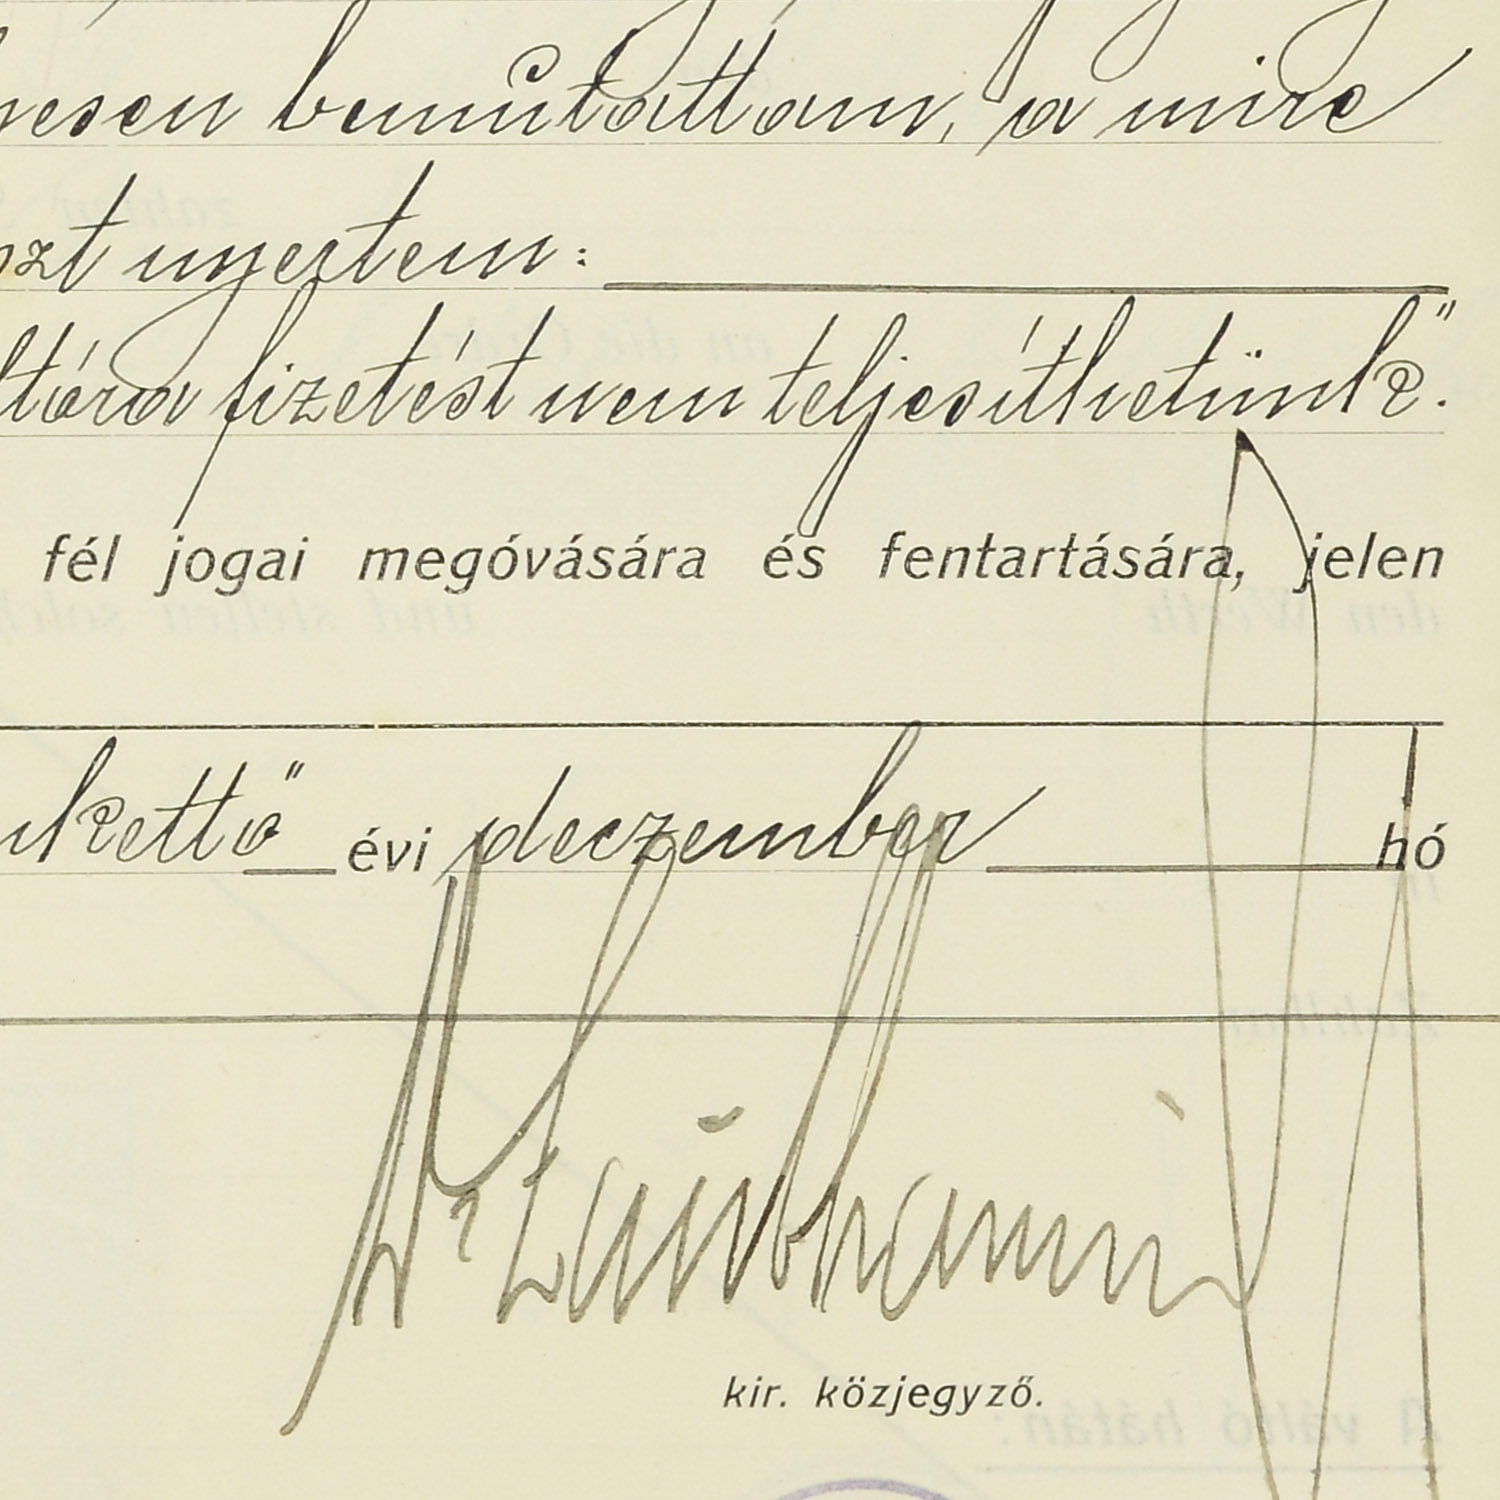 bemutattam, a mire
nyertem:
fizetést nem teljesíthetünk."
fél jogai megóvására és fentartására, jelen
kettő évi deczember hó
kir. közjegyző.